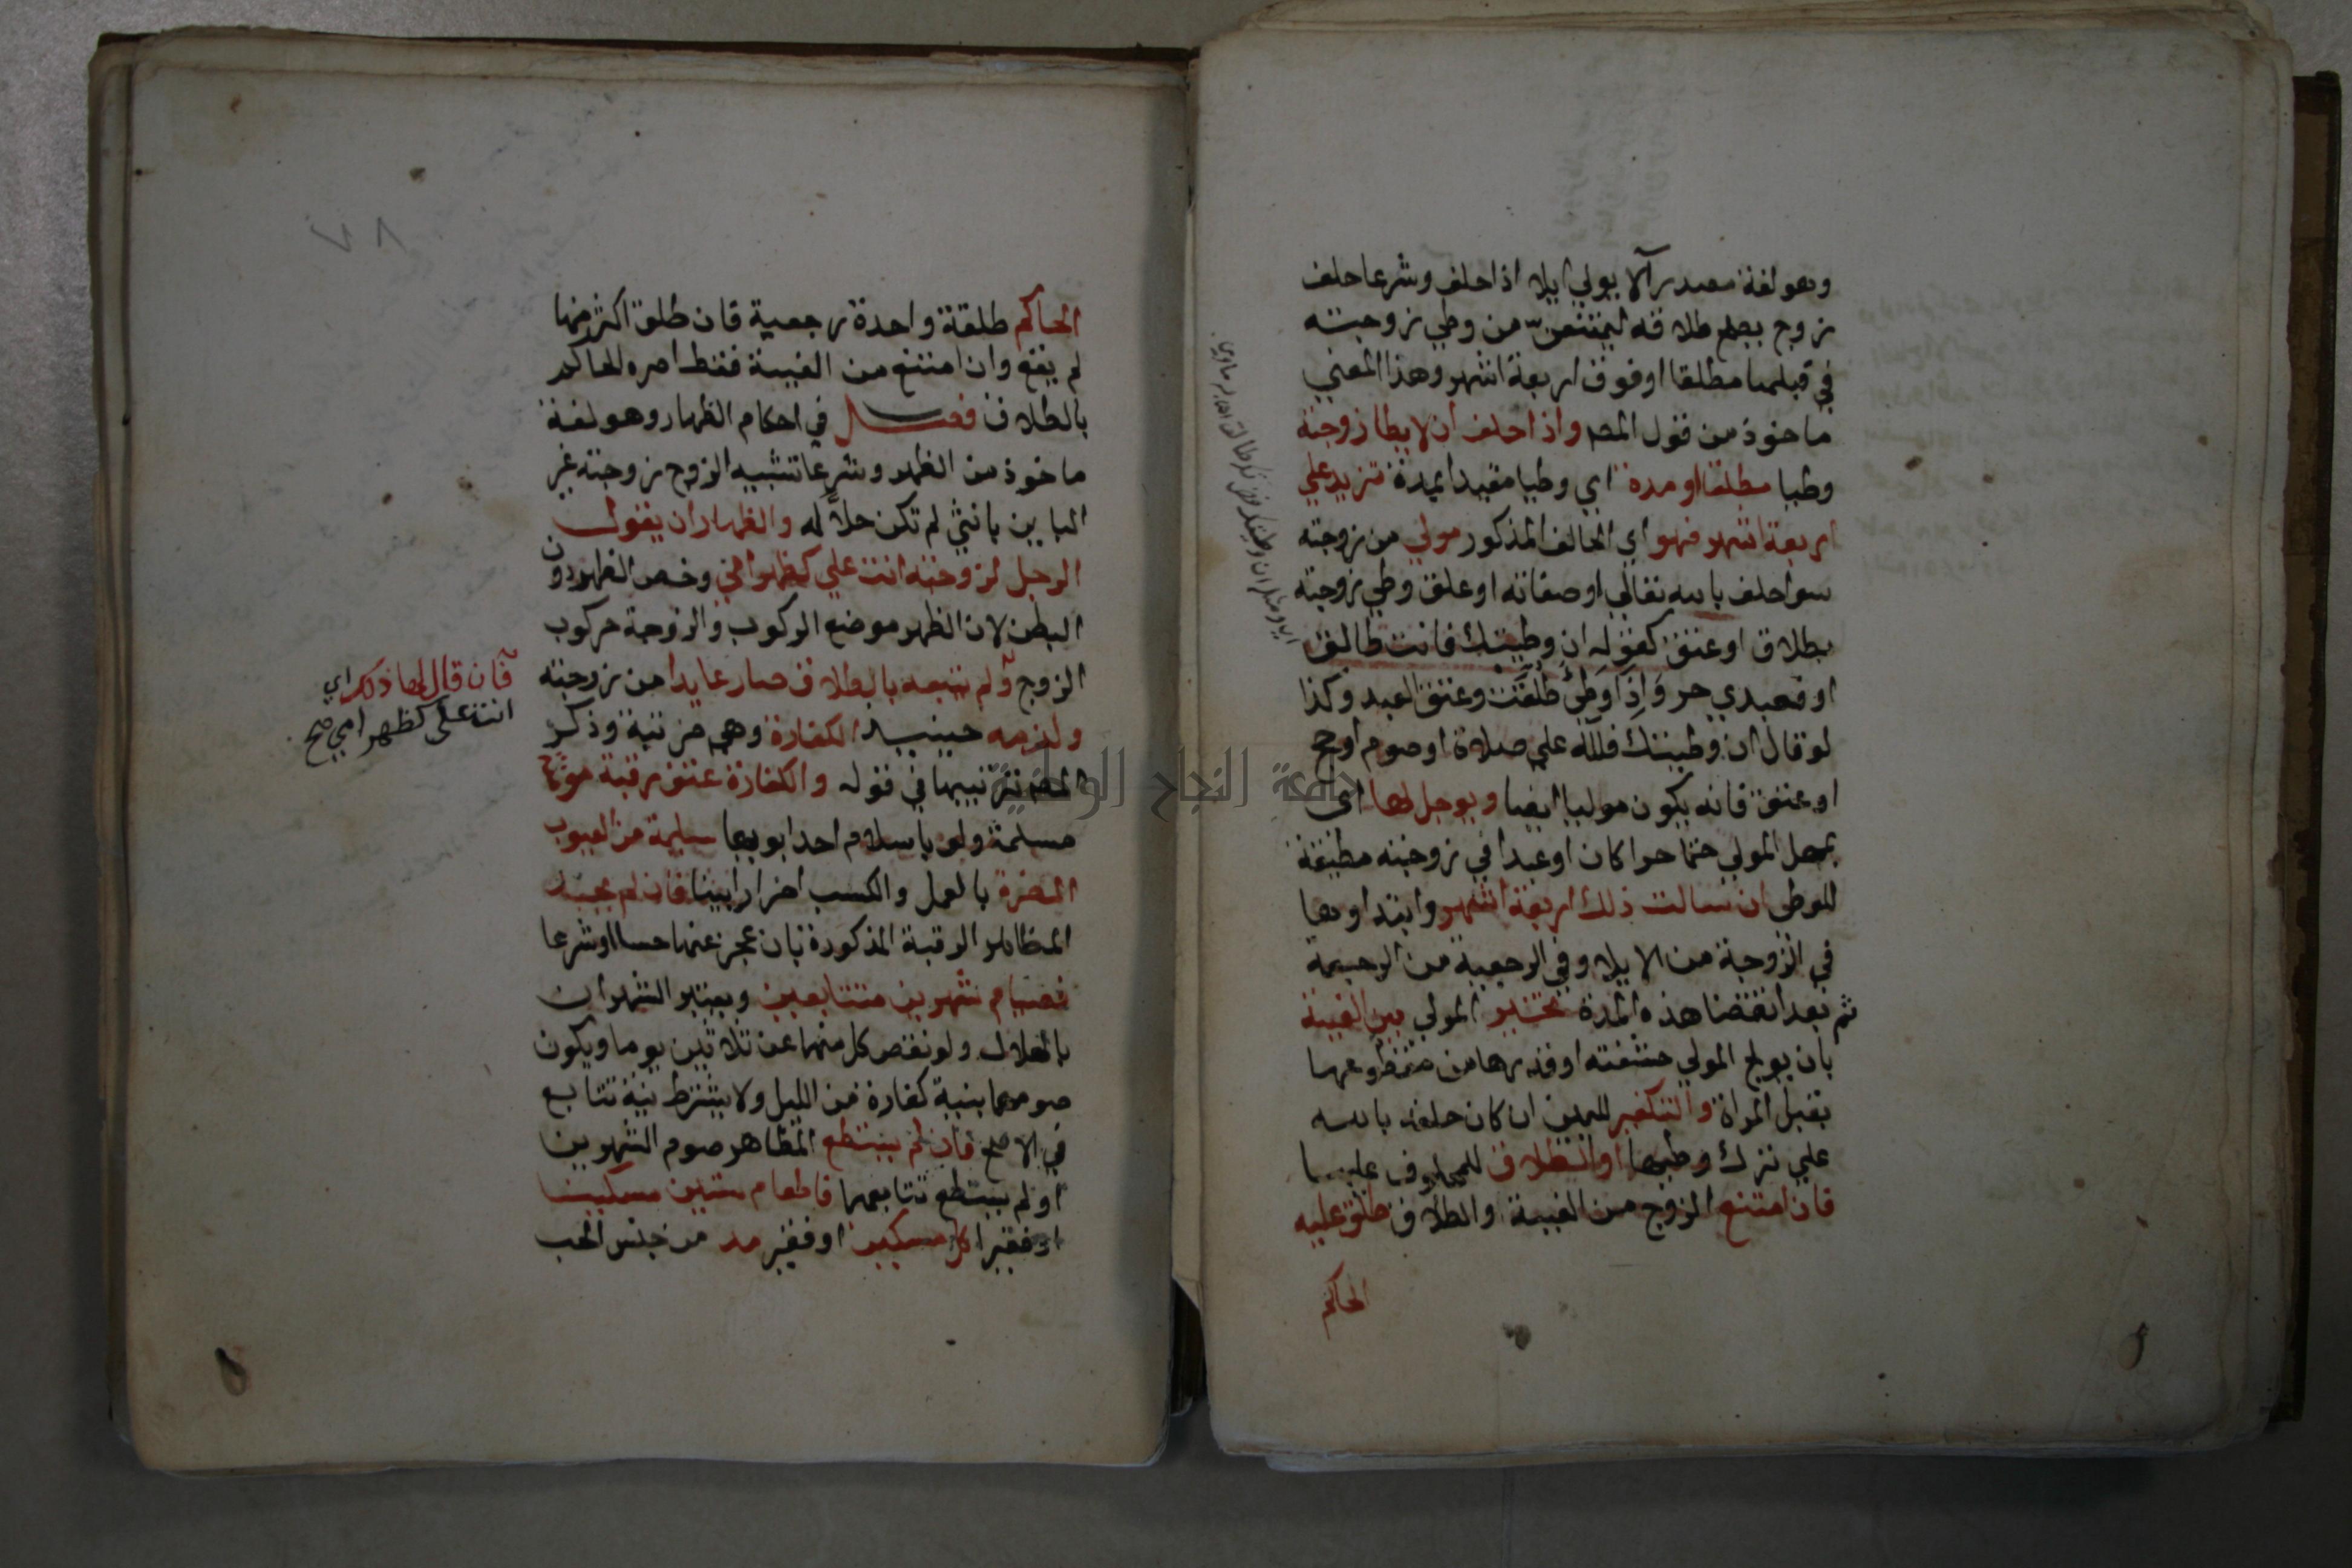 وهو لغة مصدر آلا يولي ايلا اذا حلف وشرعا حلف
زوج يصح طلاقه ليمتنعن من وطي زوجته
في قبلها مطلقا او فوق اربعة اشهر وهذا المعني
ماخوذ من قول المص واذا حلف ان لا يطا زوجته
وطيا مطلقا او مدة اي وطيا مقيدا بمدة تزيد علي
اربعة اشهر فهو اي الحالف المذكور مولي من زوجته
سوا حلف بالله تعالي او صفاته او علق وطي زوجته
بطلاق او عتق كقوله ان وطيتك فانت طالق
او فعبدي حر فاذا وطئ طلقت وعتق العبد وكذا
لو قال ان وطيتك فلله علي صلاة او صوم او حج
او عتق فانه يكون موليا ايضا ويوجل لها اي
يمهل المولي حتما حرا كان او عبدا في زوجته مطيقة
للوطي ان سالت ذلك اربعة اشهر وابتداوها
في الزوجة من الايلا وفي الرجعية من الرجعة
ثم بعد انقضا هذه المدة يخير المولي بين الفيئة
بان يولج المولي حشفته او قدرها من مقطوعها
بقبل المراة والتكفير لليمين ان كان حلفه بالله
علي ترك وطيها او الطلاق للمحلوف عليها
فان امتنع الزوج من الفيئة والطلاق طلق عليه
الحاكم
٧٨
الحاكم طلقة واحدة رجعية فان طلق اكثر منها
لم يقع وان امتنع من الفيئة فقط امره الحاكم
بالطلاق فصل في احكام الظهار وهو لغة
ماخوذ من الظهر وشرعا تشبيه الزوج زوجته غير
الباين بانثي لم تكن حلا له والظهار ان يقول
الرجل لزوجته انت علي كظهر امي وخص الظهر دون
البطن لان الظهر موضع الركوب والزوجة مركوب
الزوج ولم يتبعه بالطلاق صار عايدا من زوجته
ولزمه حينيذ الكفارة وهي مرتبة وذكر
المص ترتيبها في قوله والكفارة عتق رقبة مومنة
مسلمة ولو باسلام احد ابويها سليمة من العيوب
المضرة بالعمل والكسب اضرارا بينا فان لم يجد
المظاهر الرقبة المذكورة بان عجز عنها حسا او شرعا
فصيام شهرين متتابعين ويعتبر الشهران
بالهلال ولو نقص كل منهما عن ثلاثين يوما ويكون
صومهما بنية كفارة من الليل ولا يشترط نية تتابع
في الاصح فان لم يستطع المظاهر صوم الشهرين
او لم يستطع تتابعهما فاطعام ستين مسكينا
او فقيرا كل مسكين او فقير مد من جنس الحب
فان قال لها ذلك اي
انت علي كظهر امي صح